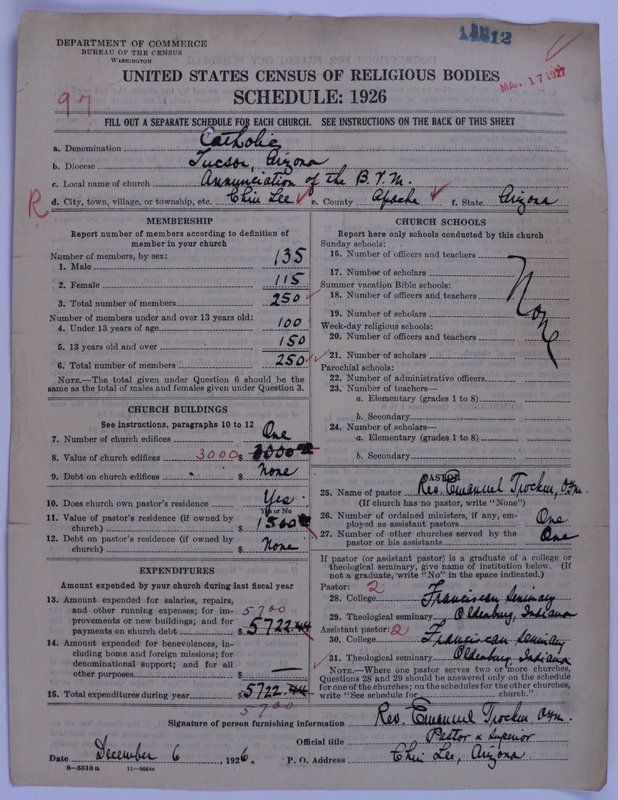 DEPARTMENT OF COMMERCE
BUREAU OF THE CENSUS
WASHINGTON
MAR 17 1927
UNITED STATES CENSUS OF RELIGIOUS BODIES
SCHEDULE: 1926
97
FILL OUT A SEPARATE SCHEDULE FOR EACH CHURCH. SEE INSTRUCTIONS ON THE BACK OF THIS SHEET
a. Denomination Catholic
b. Diocese Tucson, Arizona
c. Local name of church Annunciation of the B.V.M.
d. City, town, village, or township, etc. Chin Lee e. County Apache f. State Arizona
R
MEMBERSHIP
Report number of members according to definition of member in your church
Number of members, by sex:
1. Male 135
2. Female 115
3. Total number of members 250
Number of members under and over 13 years old:
4. Under 13 years of age 100
5. 13 years old and over 150
6. Total number of members 250
NOTE.—The total given under Question 6 should be the
same as the total of males and females given under Question 3.
CHURCH BUILDINGS
See instructions, paragraphs 10 to 12
7. Number of church edifices One
8. Value of church edifices 3000 $ 3000
9. Debt on church edifices $ None
10. Does church own pastor's residence Yes
Yes or No
11. Value of pastor's residence (if owned by
church) $ 1500
12. Debt on pastor's residence (if owned by
church) $ None
EXPENDITURES
Amount expended by your church during last fiscal year
13. Amount expended for salaries, repairs,
and other running expenses; for im-
provements or new buildings; and for 5700
payments on church debt $ 5722.44
14. Amount expended for benevolences, in-
cluding home and foreign missions; for
denominational support; and for all
other purposes $ —
15. Total expenditures during year $ 5722.44
5700
CHURCH SCHOOLS
Report here only schools conducted by this church
Sunday schools:
16. Number of officers and teachers
17. Number of scholars
Summer vacation Bible schools:
18. Number of officers and teachers
None
19. Number of scholars
Week-day religious schools:
20. Number of officers and teachers
21. Number of scholars
Parochial schools:
22. Number of administrative officers
23. Number of teachers—
a. Elementary (grades 1 to 8)
b. Secondary
24. Number of scholars—
a. Elementary (grades 1 to 8)
b. Secondary
PASTOR
25. Name of pastor Rev. Emanuel Trockur, O.F.M.
(If church has no pastor, write "None")
26. Number of ordained ministers, if any, em-
ployed as assistant pastors One
27. Number of other churches served by the
pastor or his assistants One
If pastor (or assistant pastor) is a graduate of a college or
theological seminary, give name of institution below. (If
not a graduate, write "No" in the space indicated.)
Pastor: 2
28. College Franciscan Seminary
29. Theological seminary Oldenburg, Indiana
Assistant pastor: 2
30. College Franciscan Seminary
31. Theological seminary Oldenburg, Indiana
NOTE.—Where one pastor serves two or more churches,
Questions 28 and 29 should be answered only on the schedule
for one of the churches; on the schedules for the other churches,
write "See schedule for church."
Signature of person furnishing information Rev. Emanuel Trockur, O.F.M.
Official title Pastor & Superior
Date December 6, 1926. P. O. Address Chin Lee, Arizona
8—5518a 11—9084